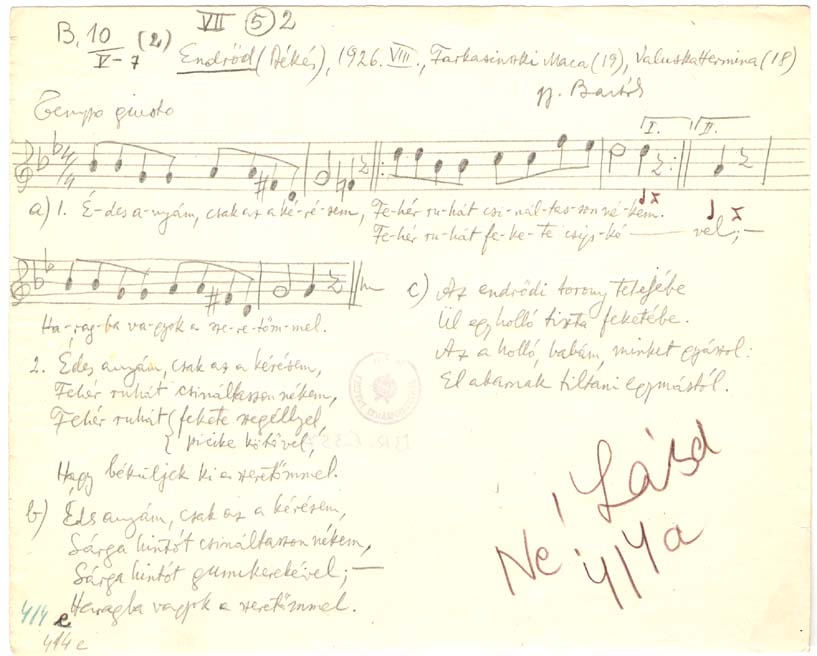 VII ⑤ 2
B. 10 (2)
V-7
Endrőd (Békés), 1926. VIII., Farkasinszki Maca (19), Valuska Hermina (18)
gy. Bartók
Tempo giusto
4/4 I. II.
a) 1. É-des a-nyám, csak az a ké-ré-sem, Fe-hér ru-hát csi-nál-tas-son né-kem.
Fe-hér ru-hát fe-ke-te csip-ké — vel; —
Ha-rag-ba va-gyok a sze-re-tőm-mel.
2. Édes anyám, csak az a kérésem,
Fehér ruhát csináltasson nékem,
Fehér ruhát { fekete szegéllyel,
{ picike kötővel,
Hagy béküljek ki a szeretőmmel.
b) Édes anyám, csak az a kérésem,
Sárga hintót csináltasson nékem,
Sárga hintót gumikerekével; —
Haragba vagyok a szeretőmmel.
c) Az endrődi torony tetejébe
Ül egy holló tiszta feketébe.
Az a holló, babám, minket gyászol:
El akarnak tiltani egymástól.
Ne! Lásd
414a
414 e
414 e